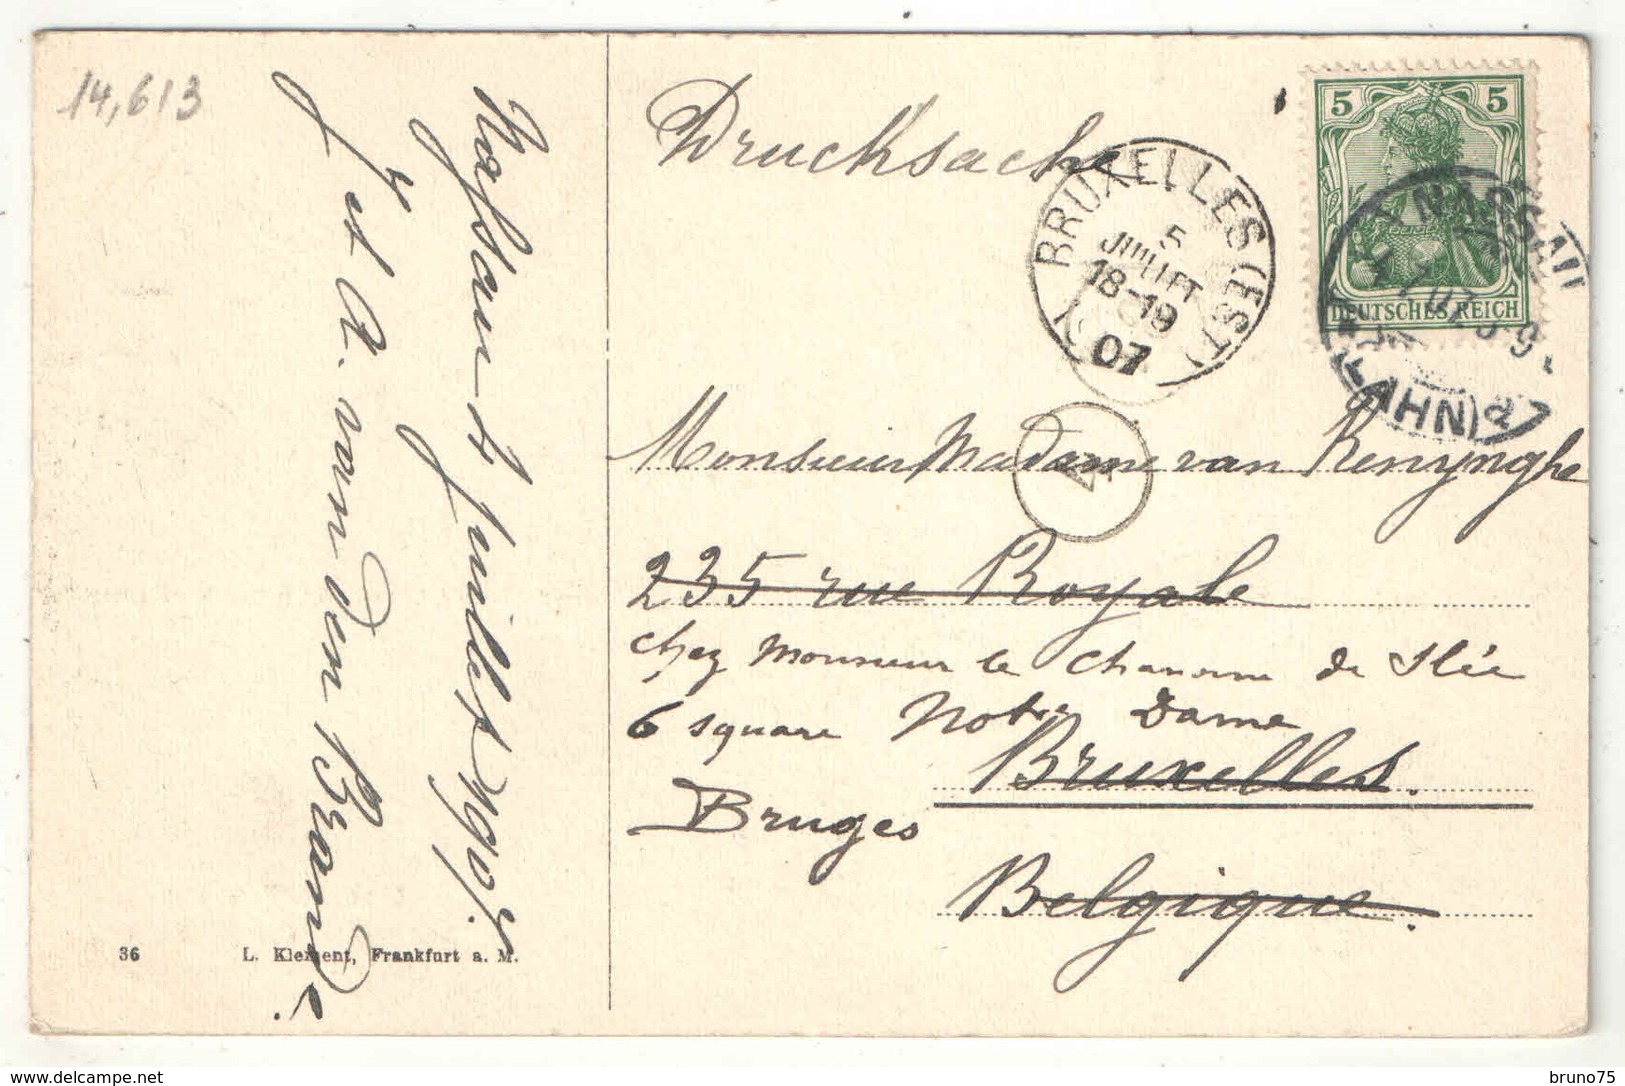 14,613
Nassau 4 juillet 1907.
J et A. van den Brande.
36
L. Klement, Frankfurt a. M.
Drucksache
BRUXELLES (EST)
5
JUILLET
18-19
07
5 5
DEUTSCHES REICH
NASSAU
(LAHN) a
Monsieur Madame van Renynghe
235 rue Royale
chez Monsieur le Chanoine de
6 square Notre Dame
Bruxelles.
Bruges
Belgique.
bruno75